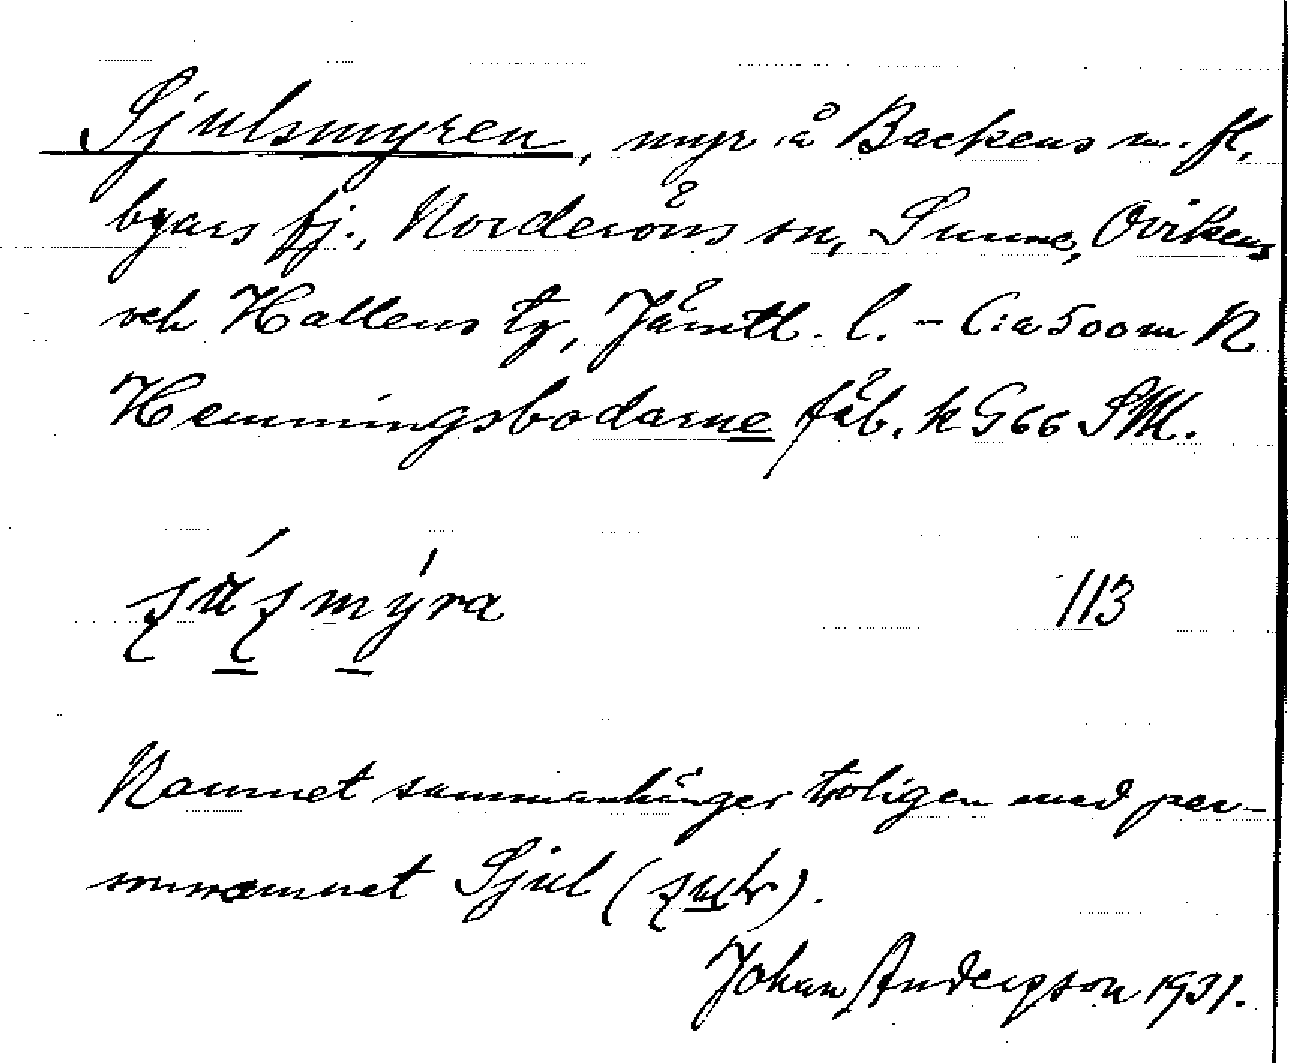 Sjulsmyren, myr å Backens m. fl.
byars fj., Norderöns sn, Sunne, Ovikens
och Hallens tg, Jämtl. l. - C:a 500 m N
Hemmingsbodarne fäb. k G 66 SM.
113
Namnet sammanhänger troligen med per-
sonnamnet Sjul
Johan Anderson 1931.